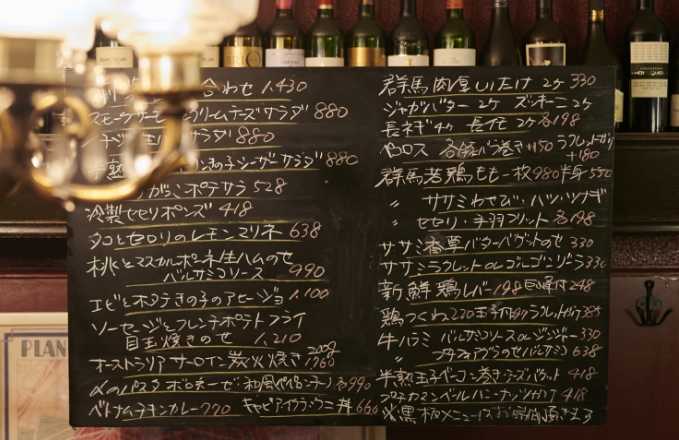 合わせ 1,430
スモークサーモン クリームチーズサラダ 880
生 サラダ 880
半熟 きの子シーザーサラダ 880
がっこポテサラ 528
冷製セセリポンズ 418
タコとセロリのレモンマリネ 638
桃とマスカルポーネ生ハムのせ
バルサミコソース 990
エビとホタテきの子のアヒージョ 1,100
ソーセージとフレンチポテトフライ
目玉焼きのせ 1,210
オーストラリア サーロイン 炭火焼き 200g 1,760
〆のパスタ ボロネーゼ・和風ペペロンチーノ 各990
ベトナムチキンカレー 770 キャビアイクラウニ丼 660
群馬肉厚しいたけ 2ヶ 330
ジャガバター 2ヶ ズッキーニ 2ヶ
長ネギ 4ヶ 長芋 2ヶ 各198
各 バラ巻き +150 ラクレットがけ
+180
群馬若鶏もも一枚 980 半身 550
〃 ササミわさび・ハツ・ツナギ
〃 セセリ・手羽 各198
ササミ香草バターバゲットのせ 330
ササミラクレット or ゴルゴンゾーラ 330
新鮮鶏レバー 198 248
鶏つくね 220 玉子 ラクレットがけ 385
牛ハラミ バルサミコソース or ジンジャー 330
〃 フォアグラのせバルサミコ 638
半熟玉子ベーコン巻きチーズバゲット 418
カマンベールハニーナッツがけ 418
※黒板メニュー 頂きます
PLAN